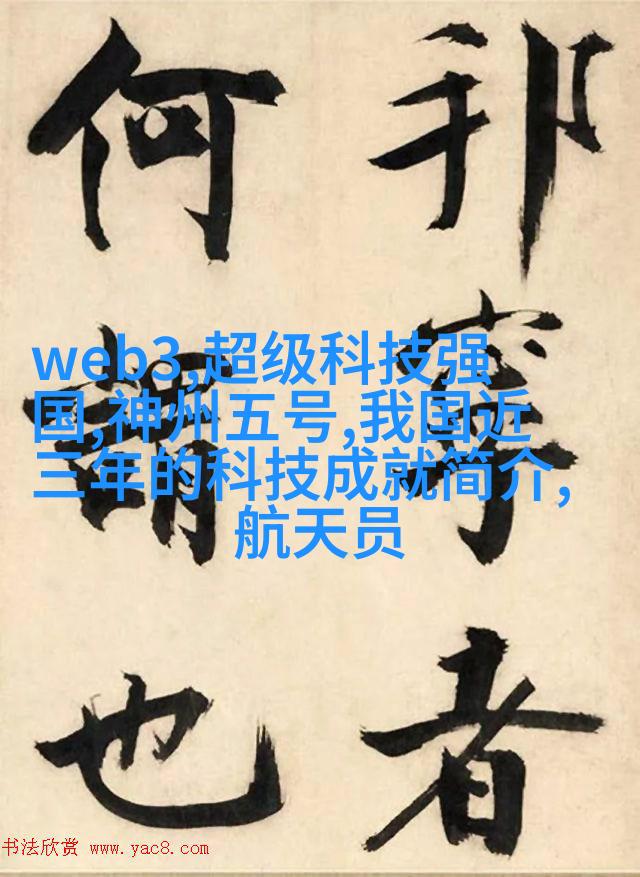 邦寧者
何謂也
web3,超级科技强
国,神州五号,我国近
三年的科技成就简介,
航天员
书法欣赏 www.yac8.com